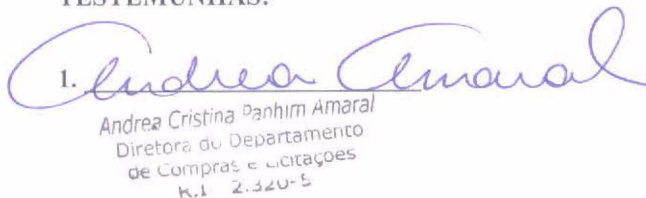 TESTEMUNHAS:
1. Andrea Amaral
Andrea Cristina Panhim Amaral
Diretora do Departamento
de Compras e Licitações
R.I 2.320-5